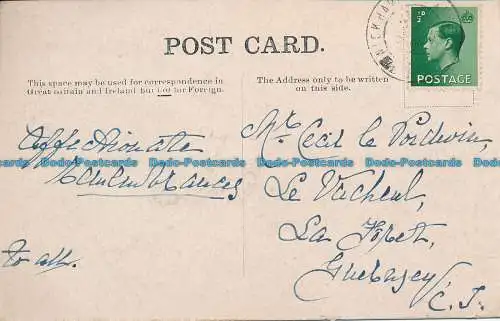 POST CARD.
½D
POSTAGE
This space may be used for correspondence in
Great Britain and Ireland but not for Foreign.
The Address only to be written
on this side.
Affectionate
Remembrances
to all.
Mr Cecil le Poidevin,
Le Vacheul,
La Foret,
Guernsey
C.I.
Dodo-Postcards Dodo-Postcards Dodo-Postcards Dodo-Postcards